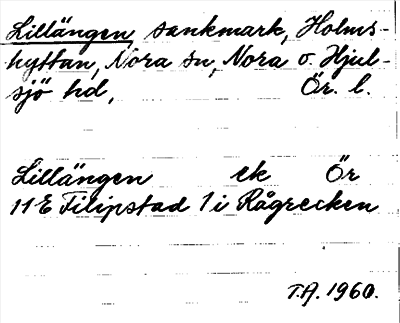 Lillängen sankmark, Holms-
hyttan, Nora sn, Nora o. Hjul-
sjö hd, Ör. l.
Lillängen ek Ör
11E Filipstad 1 i Rågrecken
T.A. 1960.